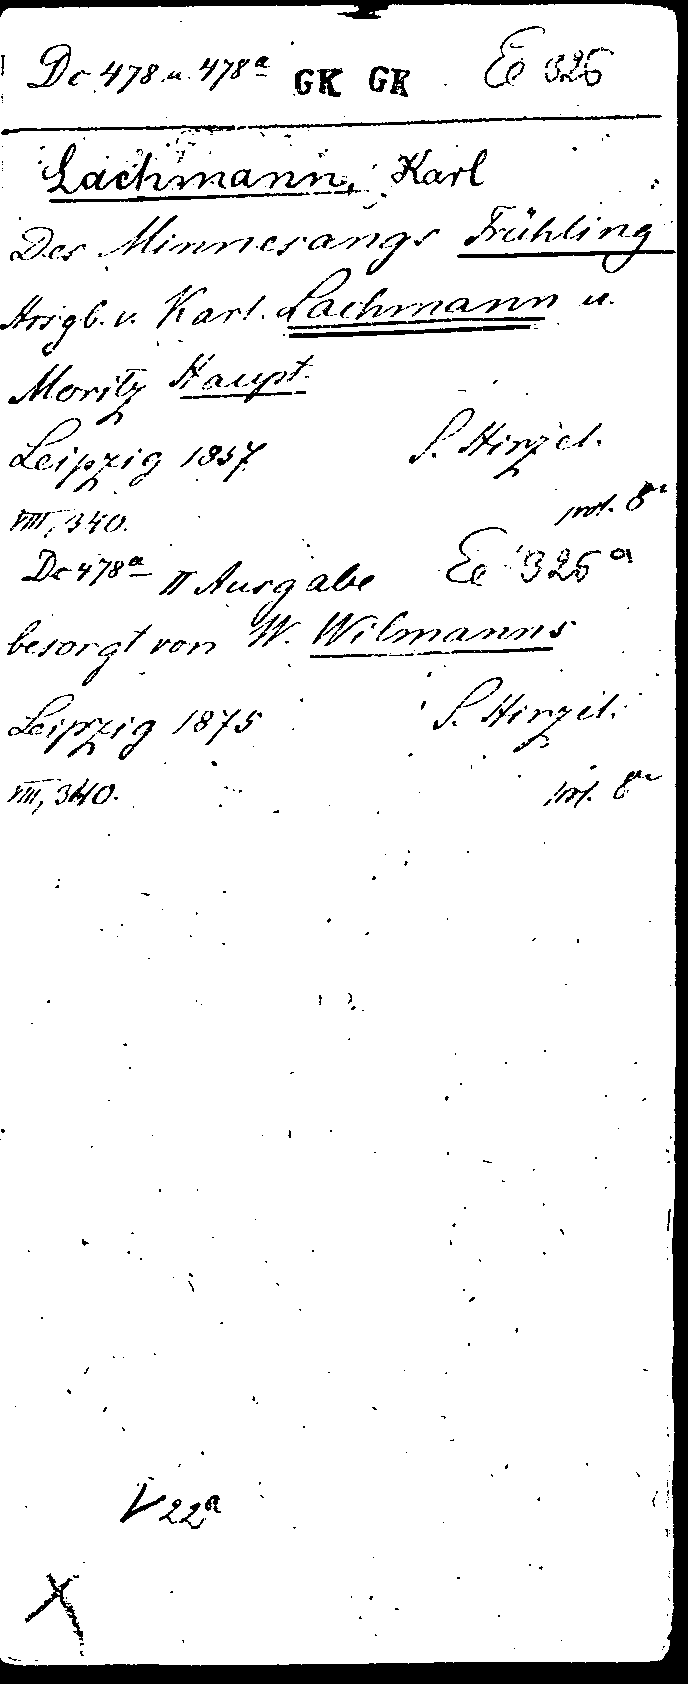 Dc 478 u. 478a GK GK Ee 326
Lachmann, Karl
Des Minnesangs Frühling
Hrsgb. v. Karl Lachmann u.
Moritz Haupt.
Leipzig 1857 S. Hirzel.
VIII, 340. 8°
Dc 478a II Ausgabe Ee 326a
besorgt von W. Wilmanns
Leipzig 1875 S. Hirzel.
VIII, 340. 8°
V 22a
X